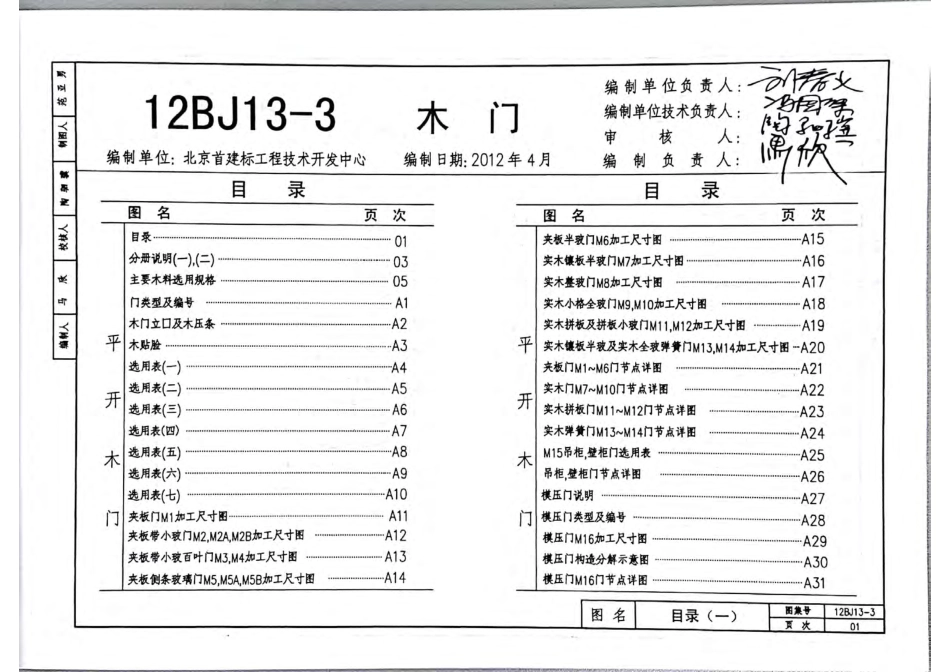 12BJ13-3 木 门
编制单位: 北京首建标工程技术开发中心 编制日期: 2012 年 4 月
编制单位负责人:
编制单位技术负责人:
审 核 人:
编 制 负 责 人:
制图人
校核人
编制人 马 永
目 录
图 名 页 次
平 开 木 门
目录 01
分册说明(一),(二) 03
主要木料选用规格 05
门类型及编号 A1
木门立口及木压条 A2
木贴脸 A3
选用表(一) A4
选用表(二) A5
选用表(三) A6
选用表(四) A7
选用表(五) A8
选用表(六) A9
选用表(七) A10
夹板门M1加工尺寸图 A11
夹板带小玻门M2,M2A,M2B加工尺寸图 A12
夹板带小玻百叶门M3,M4加工尺寸图 A13
夹板侧条玻璃门M5,M5A,M5B加工尺寸图 A14
目 录
图 名 页 次
平 开 木 门
夹板半玻门M6加工尺寸图 A15
实木镶板半玻门M7加工尺寸图 A16
实木整玻门M8加工尺寸图 A17
实木小格全玻门M9,M10加工尺寸图 A18
实木拼板及拼板小玻门M11,M12加工尺寸图 A19
实木镶板半玻及实木全玻弹簧门M13,M14加工尺寸图 A20
夹板门M1~M6门节点详图 A21
实木门M7~M10门节点详图 A22
实木拼板门M11~M12门节点详图 A23
实木弹簧门M13~M14门节点详图 A24
M15吊柜,壁柜门选用表 A25
吊柜,壁柜门节点详图 A26
模压门说明 A27
模压门类型及编号 A28
模压门M16加工尺寸图 A29
模压门构造分解示意图 A30
模压门M16门节点详图 A31
图 名 目录（一） 图集号 12BJ13-3
页 次 01